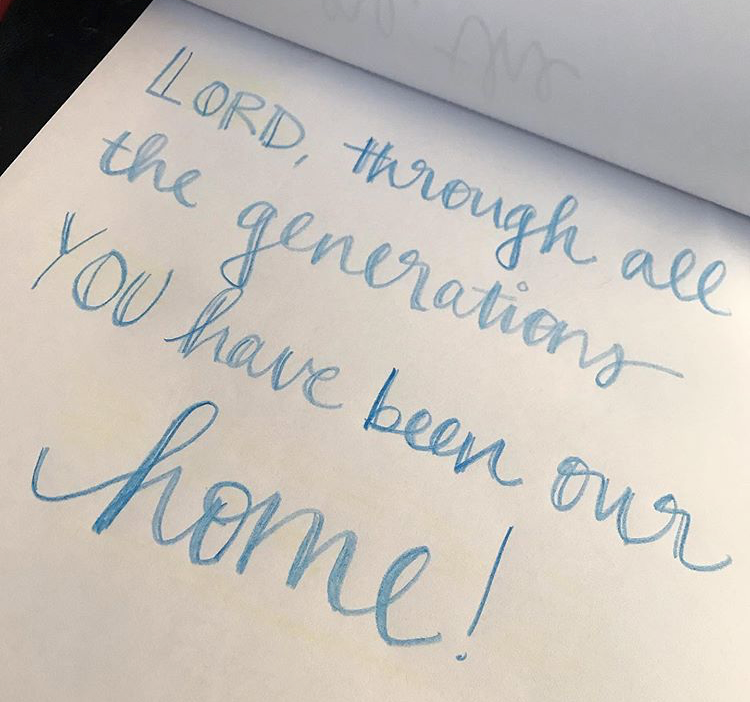 LORD, through all
the generations
YOU have been our
home!